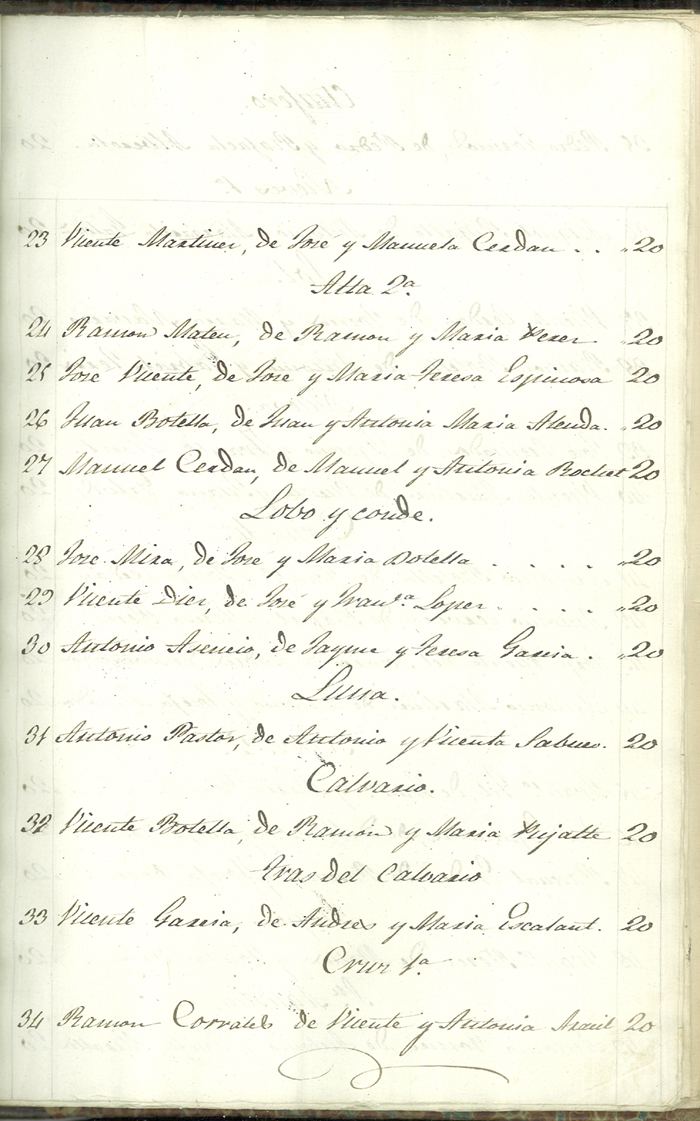 23 Vicente Martinez, de José y Manuela Cerdan . . "20
Alta 2.ª
24 Ramon Mateu, de Ramon y Maria Perez "20
25 Jose Vicente, de Jose y Maria Teresa Espinosa 20
26 Juan Botella, de Juan y Antonia Maria Alenda. "20
27 Manuel Cerdan, de Manuel y Antonia 20
Lobo y conde.
28 Jose Mira, de José y Maria Botella . . . . . "20
29 Vicente Diez, de José y Fran.ca Lopez . . . . "20
30 Antonio Asencio, de Jayme y Teresa Garcia . "20
Luna.
31 Antonio Pastor, de Antonio y Vicenta Sabuco. 20
Calvario.
32 Vicente Botella, de Ramon y Maria 20
Eras del Calvario
33 Vicente Garcia, de Andres y Maria Escalant. 20
Cruz 1.ª
34 Ramon Corrales de Vicente y Antonia 20